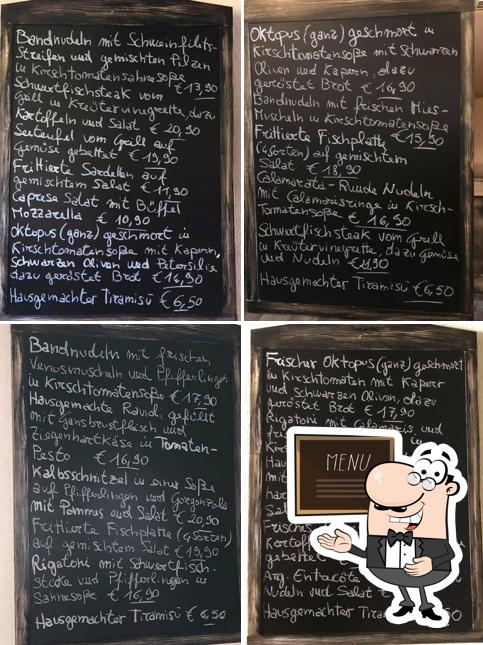 Bandnudeln mit Schweinfilets-
Streifen und gemischten Pilzen
in Kirschtomatensahnesoße
€ 13,90
Schwertfischsteak vom
Grill in Kräutervinegrette, dazu
Kartoffeln und Salat € 20,90
Seeteufel vom Grill auf
Gemüse gebettet € 19,90
Frittierte Sardellen auf
gemischtem Salat € 11,90
Caprese Salat mit Büffel
Mozzarella € 10,90
Oktopus (ganz) geschmort in
Kirschtomatensoße mit Kapern,
Schwarzen Oliven und Petersilie
dazu geröstet Brot € 14,90
Hausgemachter Tiramisù € 6,50
Oktopus (ganz) geschmort in
Kirschtomatensoße mit Schwarzen
Oliven und Kapern, dazu
geröstet Brot € 16,90
Bandnudeln mit frischen Mies-
Muscheln in Kirschtomatensoße
€ 15,90
Frittierte Fischplatte
(4 Sorten) auf gemischtem
Salat € 18,90
Calamarata - Runde Nudeln
mit Calamarisringe in Kirsch-
Tomatensoße € 16,90
Schwertfischsteak vom Grill
in Kräutervinegrette, dazu Gemüse
und Nudeln € 21,90
Hausgemachter Tiramisù € 6,50
Bandnudeln mit frischen
Venusmuscheln und Pfifferlingen
in Kirschtomatensoße € 17,90
Hausgemachte Ravioli gefüllt
mit Gansbrustfleisch und
Ziegenhartkäse in Tomaten-
Pesto € 16,90
Kalbsschnitzel in einer Soße
auf Pfifferlingen und Gorgonzola
mit Pommes und Salat € 20,90
Frittierte Fischplatte (4 Sorten)
auf gemischtem Salat € 19,90
Rigatoni mit Schwertfisch-
Stücke und Pfifferlingen in
Sahnesoße € 16,90
Hausgemachter Tiramisù € 6,50
Frischer Oktopus (ganz) geschmort
in Kirschtomaten mit Kapern
und schwarzen Oliven, dazu
geröstet Brot € 17,90
Rigatoni mit Calamaris, und
MENU
Frisches
gebettet
Arg. Entrecôte
Nudeln und Salat €
Hausgemachter 50